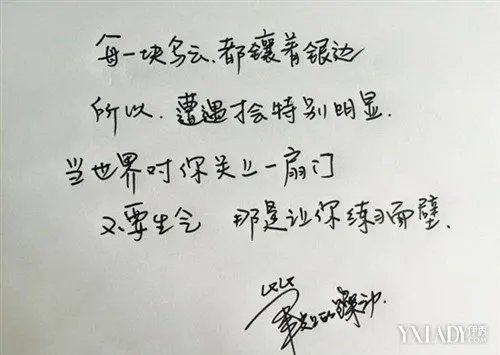 每一块乌云、都镶着银边
所以、遭遇才会特别明显.
当世界对你关上一扇门
不要生气 那是让你练习面壁.
YXLADY伊秀.COM